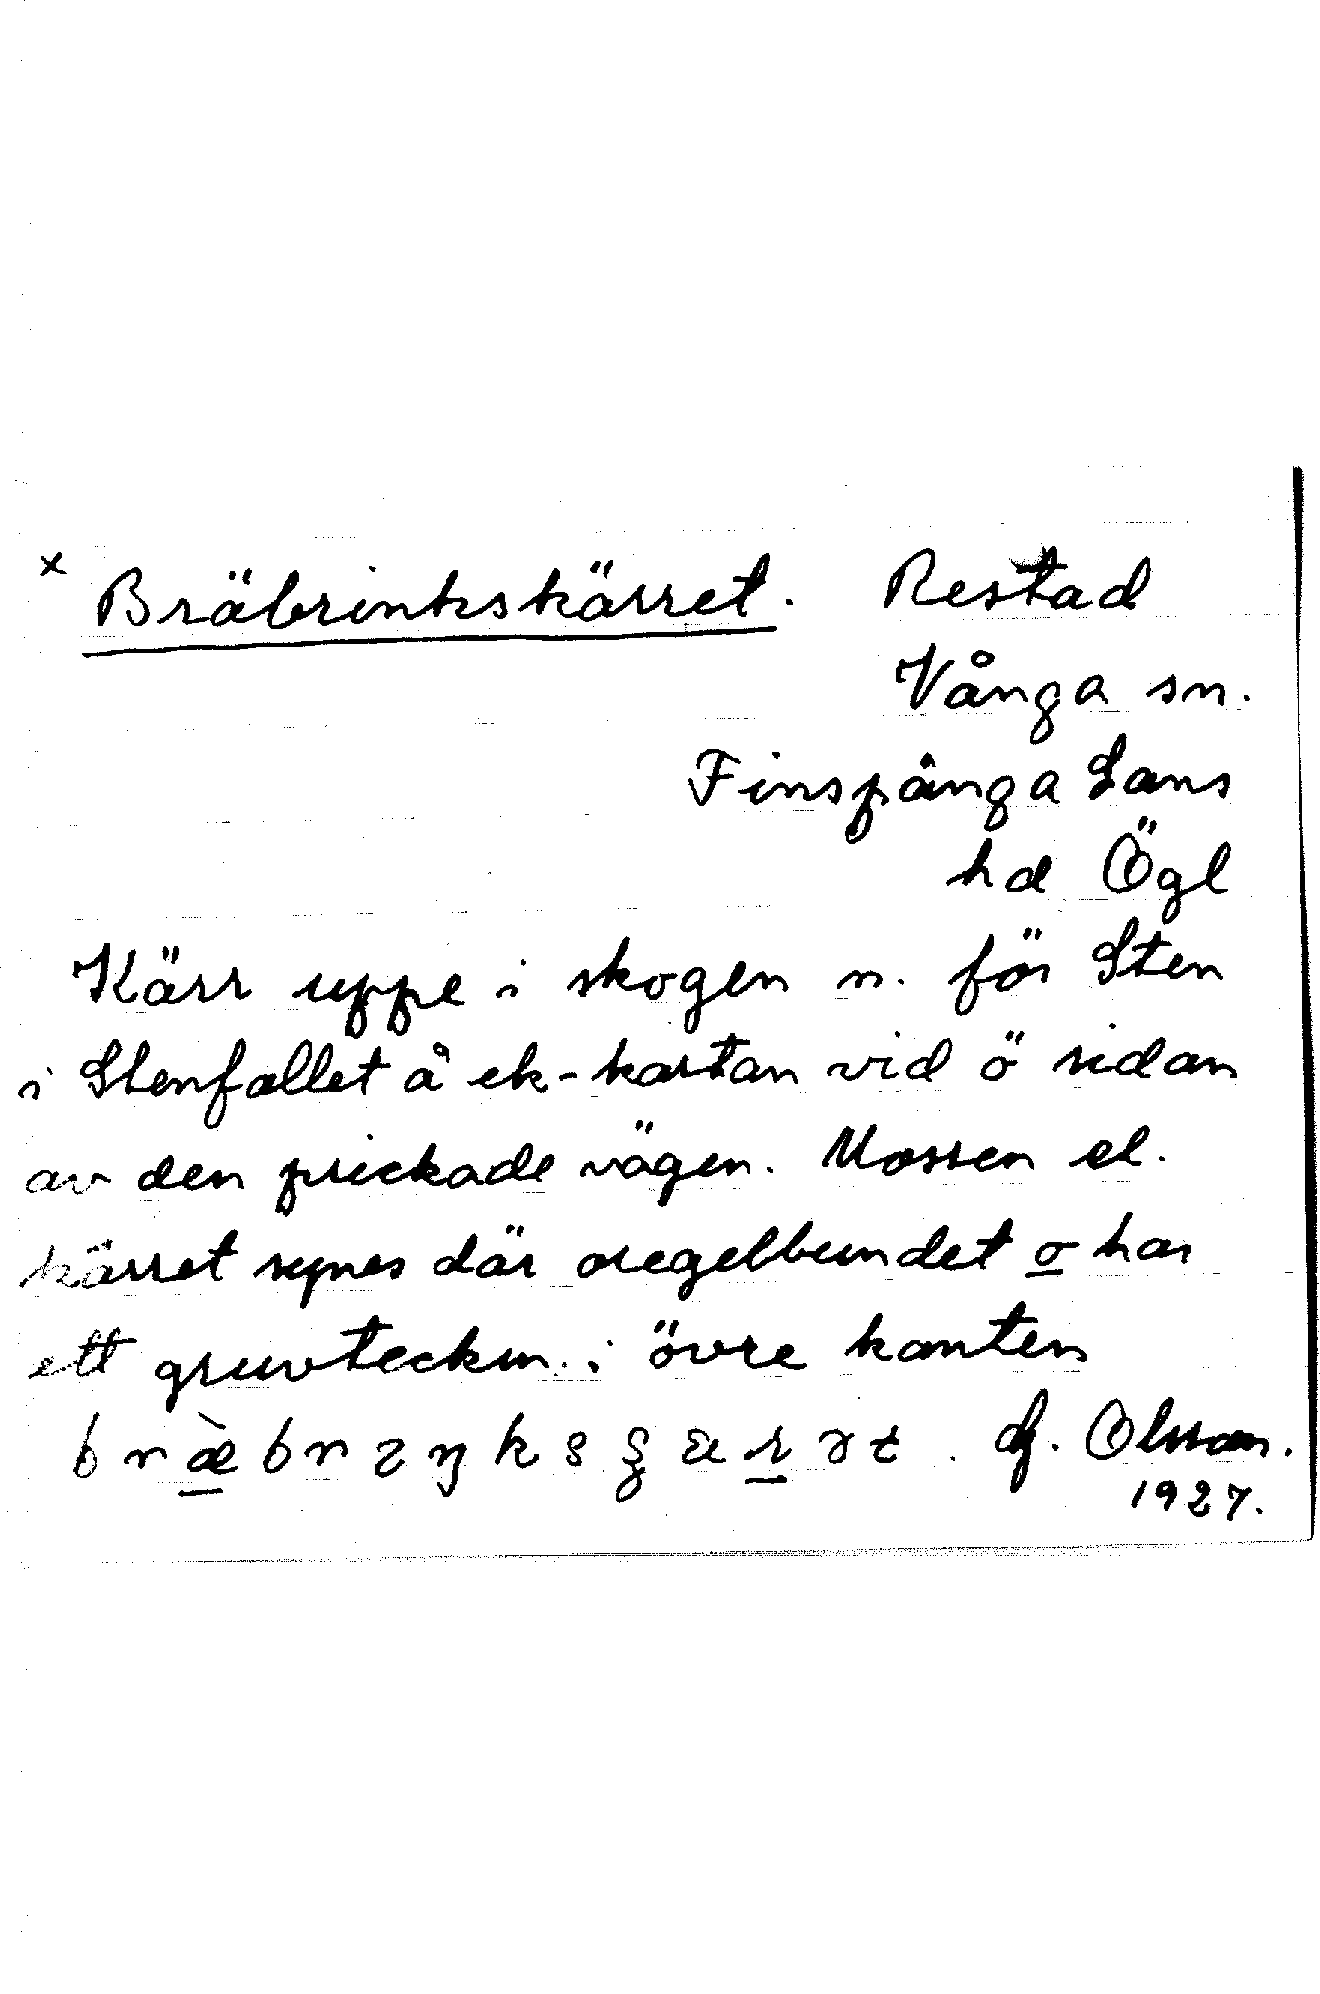 x Bräbrinkskärret. Restad
Vånga sn.
Finspånga Läns
hd Ögl
Kärr uppe i skogen n. för Sten
i Stenfallet å ek-kartan vid ö sidan
av den prickade vägen. Mossen el.
kärret synes där oregelbundet o har
ett gruvtecken i övre kanten
Olsson.
1927.